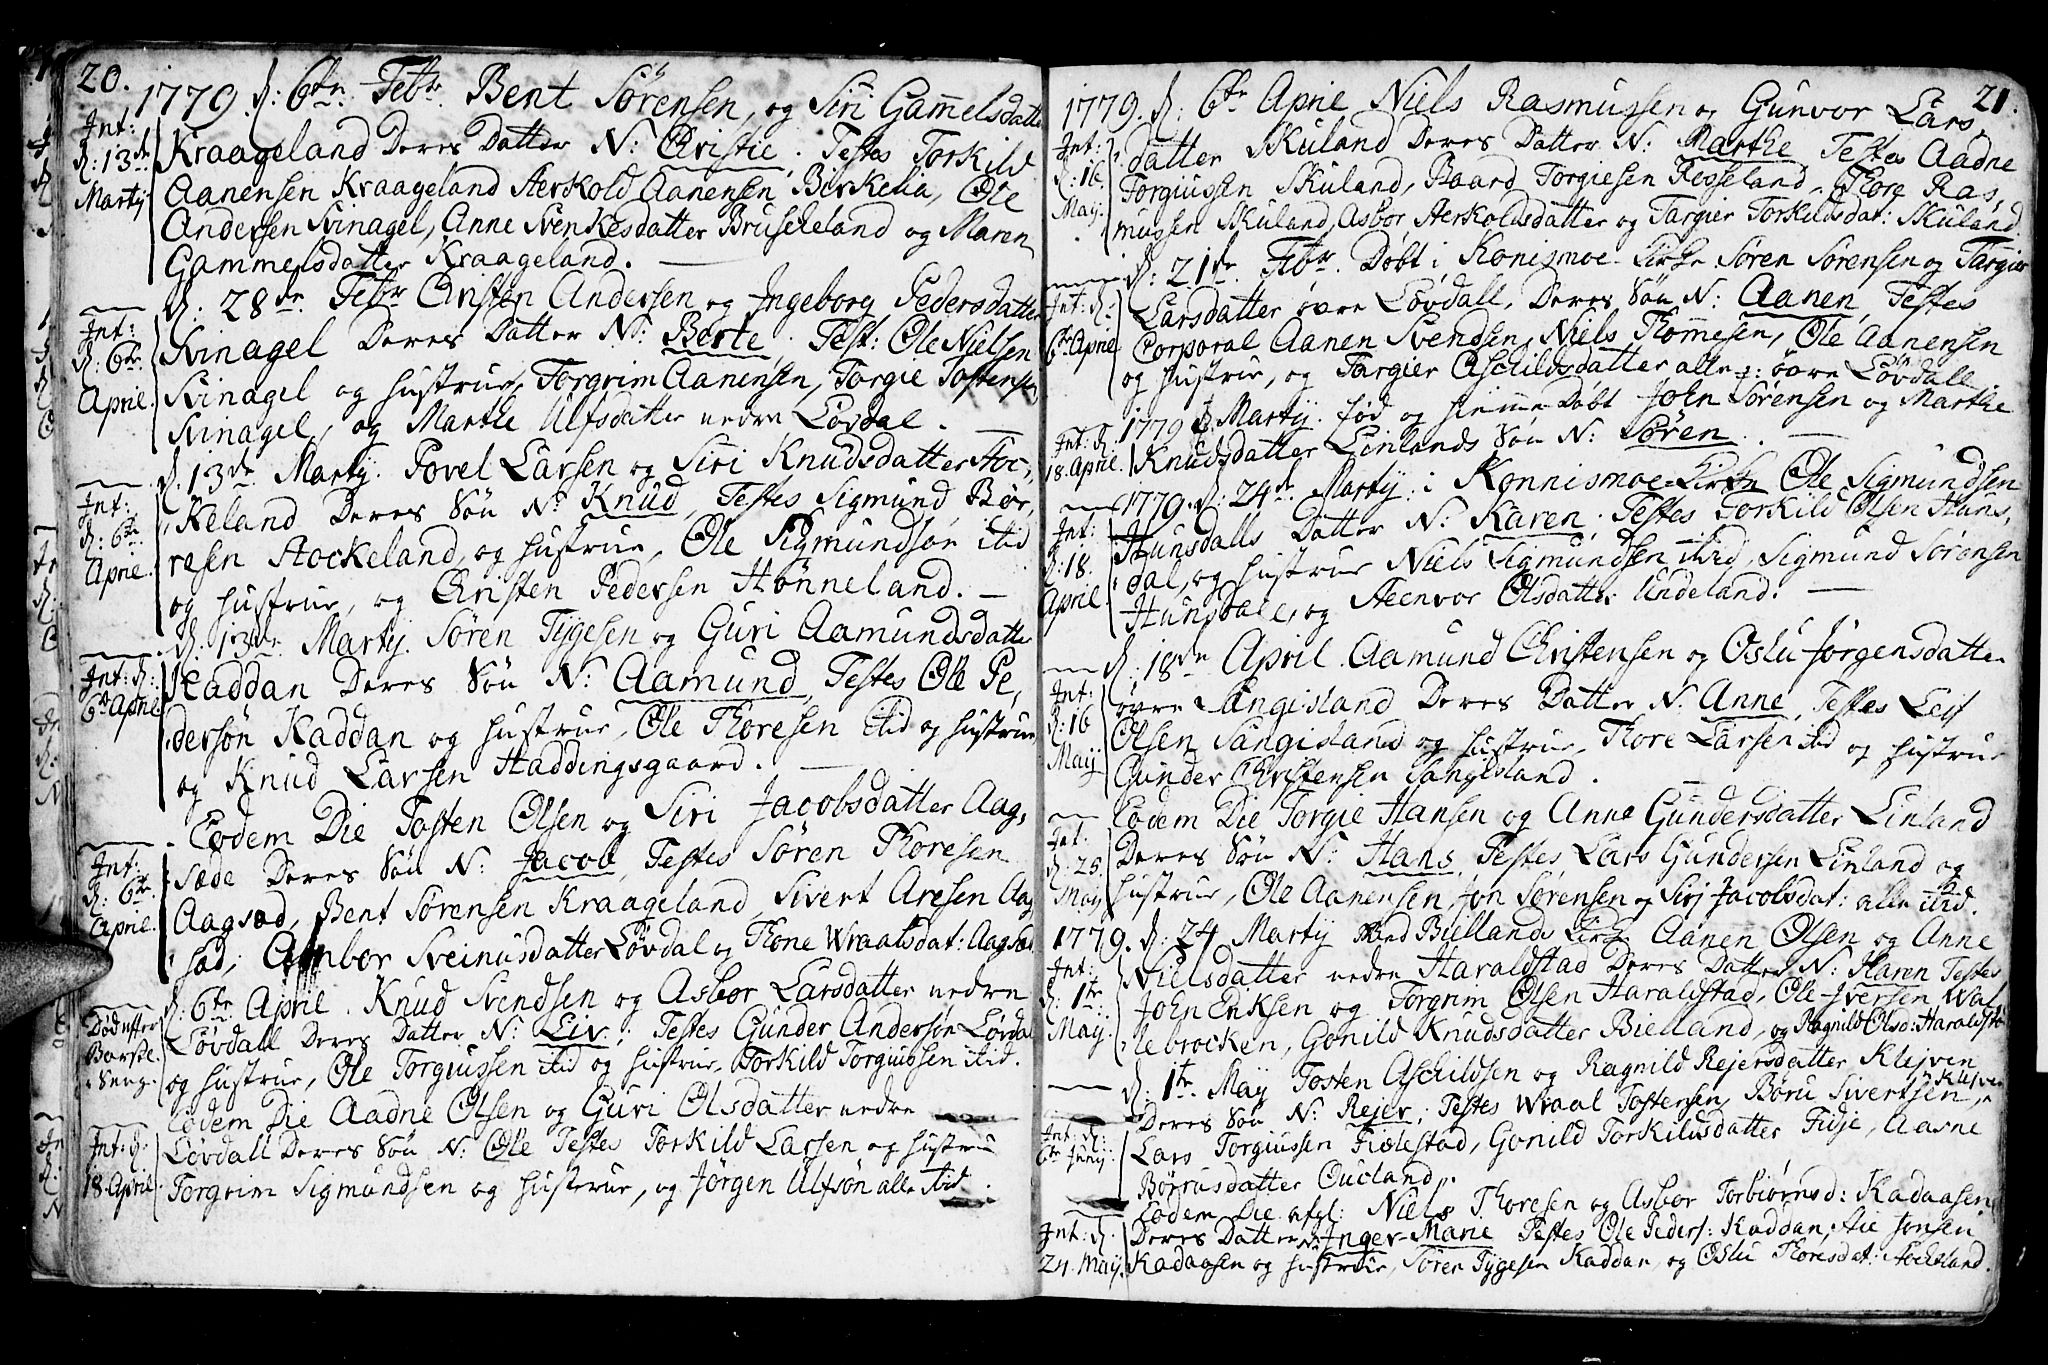 20.
1779. d: 6te Febr. Bent Sörensen, og Siri Gam̄elsdatter
Int: d: 13de Martij
Kraageland Deres Datter N: Christie. Testes Torkild
Aanensen Kraageland Aerkold Aanensen Birkelia, Ole
Andersen Svinagel, Anne Svenkesdatter Bruskeland og Maren
Gammelsdatter Kraageland.
d: 28de Febr Christen Andersen og Ingeborg Pedersdatter
Int: d: 6te April.
Svinagel Deres Datter N: Berte. Test: Ole Nielsen
Svinagel og hustrue, Torgrim Aanensen, Torgie Tostensen
Svinagel, og Marthe Ulfsdatter nedre Lövdal.
d. 13de Martij. Povel Larsen og Siri Knudsdatter Stoc,
Int: d: 6te April.
keland Deres Sön N: Knud, Testes Sigmund Bör,
resen Stockeland, og hustrue, Ole Sigmundsön ibid
og hustrue, og Christen Pedersen Hönneland.
d. 13de Martij. Sören Tygesen og Guri Aamundsdatter
Int: d: 6te April.
Kaddan Deres Sön N: Aamund, Testes Ole Pe,
dersön Kaddan og hustrue, Ole Thoresen ibid og hustrue
og Knud Larsen Haddingsgaard.
Eodem Die Tosten Olsen og Siri Jacobsdatter Aag,
Int: d: 6te April.
sæde Deres Sön N: Jacob, Testes Sören Thoresen
Aagsæd, Bent Sörensen Kraageland, Sivert Aresen Aag
sæd, Aanbor Sveinusdatter Lövdal og Thone Wraalsdat: Aagsæd
d: 6te April. Knud Svendsen og Asbor Larsdatter nedre
Död efter Barsel Seng.
Lövdall Deres Datter N: Liv; Testes Gunder Andersön Lövdal
og hustrue, Ole Torgiussen ibid og hustrue, Torkild Torgiussen ibid.
Eodem Die Aadne Olsen og Guri Olsdatter nedre
Int: d. 18. April.
Lövdall Deres Sön N: Ole Testes Torkild Larsen og hustrue
Torgrim Sigmundsen og hustrue, og Jörgen Ulfsön alle ibid.
21.
1779. d: 6te April Niels Rasmussen og Gunvor Lars,
Int: d: 16. Maij.
datter Skuland Deres Datter N: Marthe Testes Aadne
Torgiussen Skuland, Baard Torgiesen Rosseland, Thore Ras,
mussen Skuland, Asbor Aerkoldsdatter og Targier Torkildsdat: Skuland
d: 21de Febr. Döbt i Konismoe Kirke Sören Sörensen og Targier
Int: d: 6te April
Larsdatter övre Lövdall, Deres Sön N: Aanen, Testes
Corporal Aanen Svendsen, Niels Thom̄esen, Ole Aanensen
og hustrue, og Targier Aschildsdatter alle övre Lövdall
1779 d. Martij. föd og hiemme Döbt John Sörensen og Marthe
Int: d. 18. April.
Knudsdatter Einlands Sön N: Sören.
1779. d: 24de Martij i Konnismoe Kirke Ole Sigmundsen
Int: d: 18. April.
Hunsdalls Datter N: Karen. Testes Torkild Olsen Huns,
dal, og hustrue Niels Sigmundsen ibid, Sigmund Sörensen
Hunsdale, og Steenvor Olsdatter Undeland.
d. 18de April. Aamund Christensen og Oslu Jörgensdatter
Int: d: 16 Maij
övre Sangisland Deres Datter N. Anne, Testes Leif
Olsen Sangisland og hustrue, Thore Larsen ibid og hustrue
Gunder Christensen Sangisland.
Eodem Die Torgie Hansen og Anne Gundersdatter Einland
Int. d. 25. Maij
Deres Sön N: Hans, Testes Lars Gundersen Einland og
hustrue, Ole Aanensen, Jon Sörensen og Sirj Jacobsdat: alle ibid.
1779. d: 24 Martij ved Biellands Kirke Aanen Olsen og Anne
Int: d: 1te Maij.
Nielsdatter nedre Haraldstad Deres Datter N: Karen Testes
John Eriksen og Torgrim Olsen Haraldstad, Ole Iversen Wal,
lebrocken, Gonild Knudsdatter Bielland, og Ragnild Olsd: Haraldstd
d: 1te Maij Tosten Aschildsen og Ragnild Rejersdatter Klejven
Int: d: 6te Junij
Deres Sön N: Rejer; Testes Wraal Tostensen, Böru Sivertsen, Klejven
Lars Torgiussen Fiælestad, Gonild Torkildsdatter Fidje, Aasne
Börrusdatter Oucland.
Eodem Die Niels Thoresen og Asbor Torbiörnsd: Kadaasen
Int: d. 24. Maij.
Deres Datter N: Inger Marie Testes Ole Peders: Kaddan, Aie Jonsen
Kadaasen og hustrue, Sören Tygesen Kaddan, og Oslu Thoresdat: Stockeland.